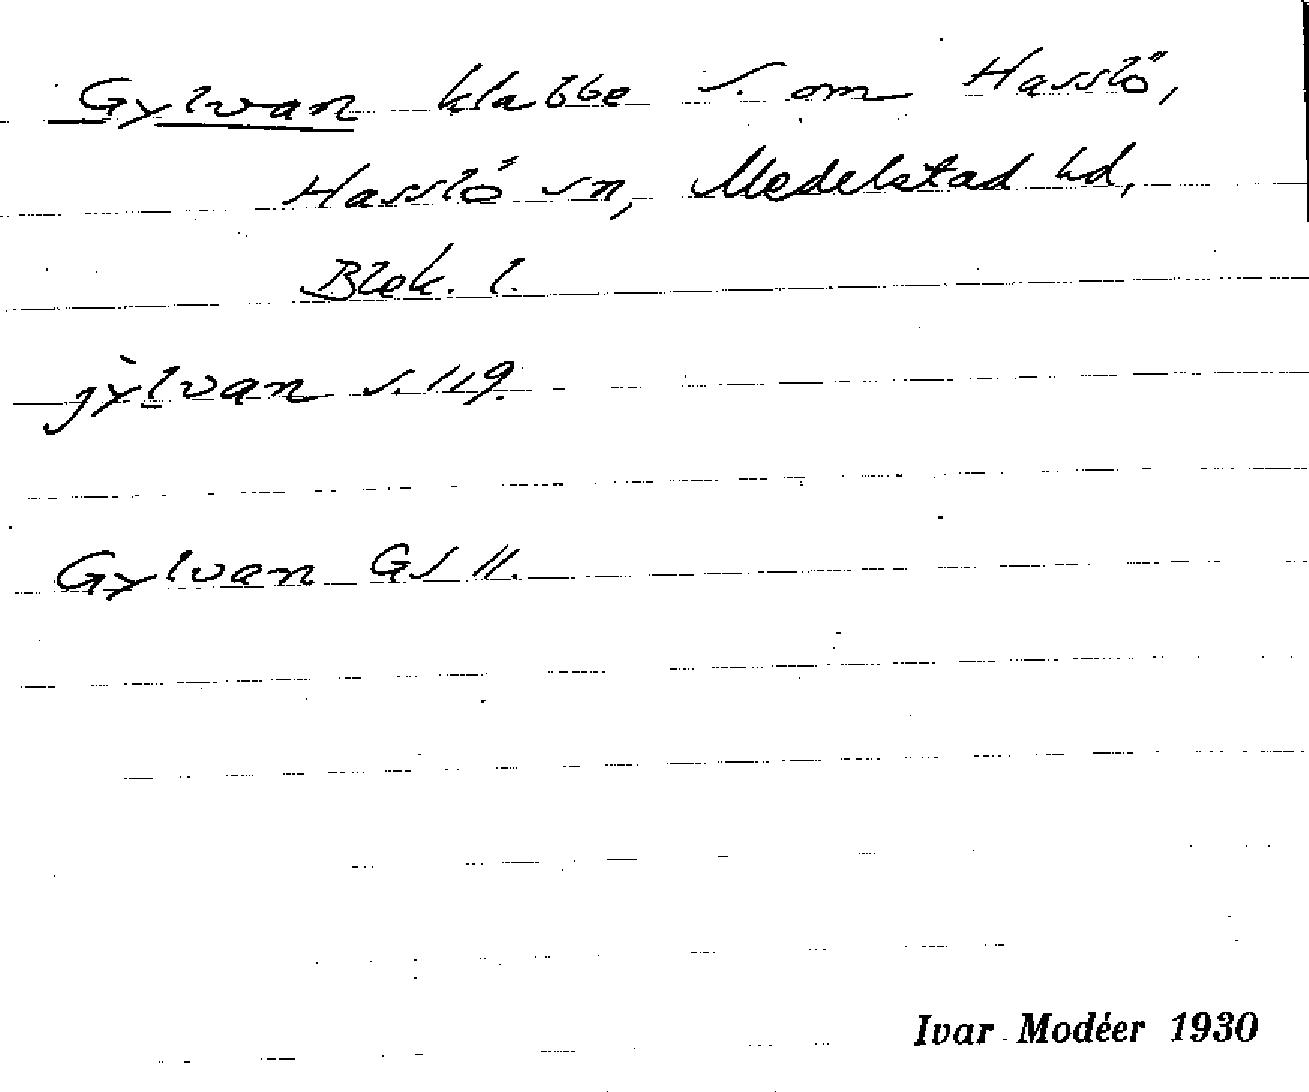 Gylvan klabbe s. om Hasslö,
Hasslö sn, Medelstad hd,
Blek. l.
jỳlvan s. 119.
Gylvan GS 11.
Ivar Modéer 1930